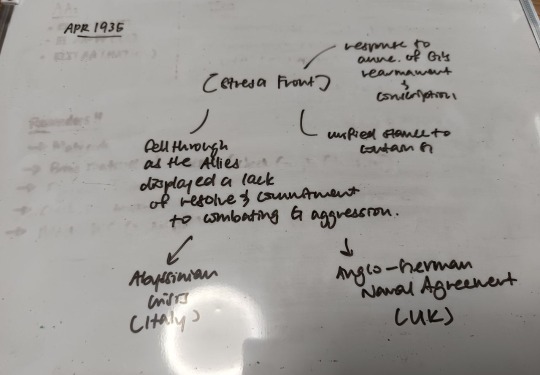 APR 1935
response to
anne. of G's
rearmament
&
conscription
(Stresa Front)
unified stance to
contain G
fell through
as the Allies
displayed a lack
of resolve & commitment
to combating G aggression.
Abyssinian
Crisis
(Italy)
Anglo-German
Naval Agreement
(UK)